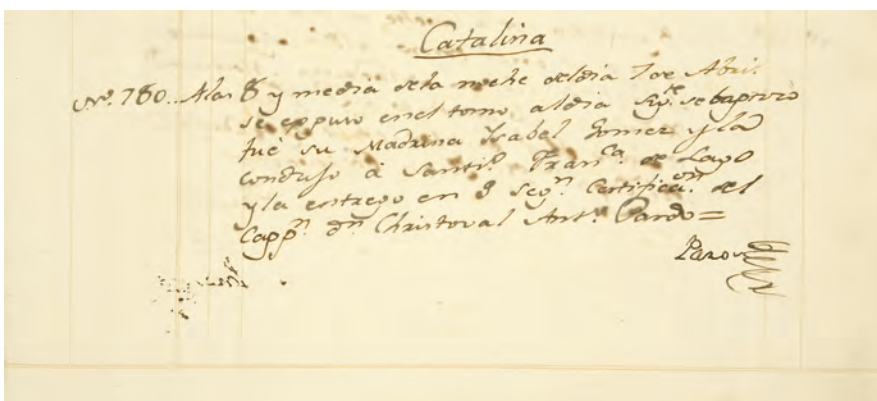 Catalina
Nº. 780.. Alas 8 y media dela noche deldia 7 de Abril
se eppuso enel torno aldia Sigᵗᵉ. se baptizò
fué su Madrina Ysabel Gomez y la
condujo à Santiº. Franᶜᵃ. de Lago
y la entrego en 9 segⁿ. Certificaᵒⁿ. del
Capp.ⁿ Dⁿ Christoval Antº. Pardo =